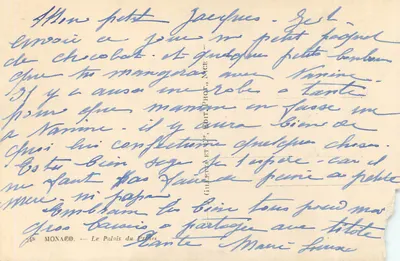 Mon petit Jacques. Je t'
envoie ce jour un petit paquet
de chocolat. et quelques petits bonbons
que tu mangeras avec Nanine.
Il y a aussi une robe a tante
pour que maman en fasse une
a Nanine. il y aura bien de
quoi lui confectionner quelque chose.
Es tu bien sage je l'espère. car il
ne faut pas faire de peine a petite
mere, ni papa.
Embrasse les bien tous pour moi
gros baisers a partager avec titote
Tante Marie Louise
48 MONACO. - Le Palais du